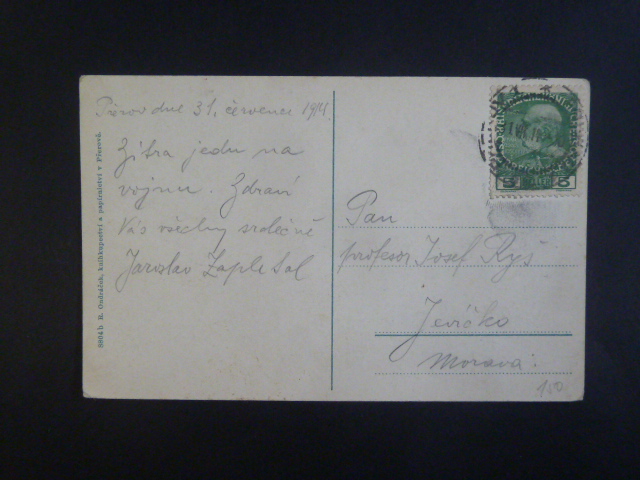 Přerov dne 31. července 1914.
Zítra jedu na
vojnu. Zdraví
Vás všechny srdečně
Jaroslav Zapletal
Pan
profesor Josef Ryš
Jevíčko
Morava.
100
5 5
8804b R. Ondráček, knihkupectví a papírnictví v Přerově.